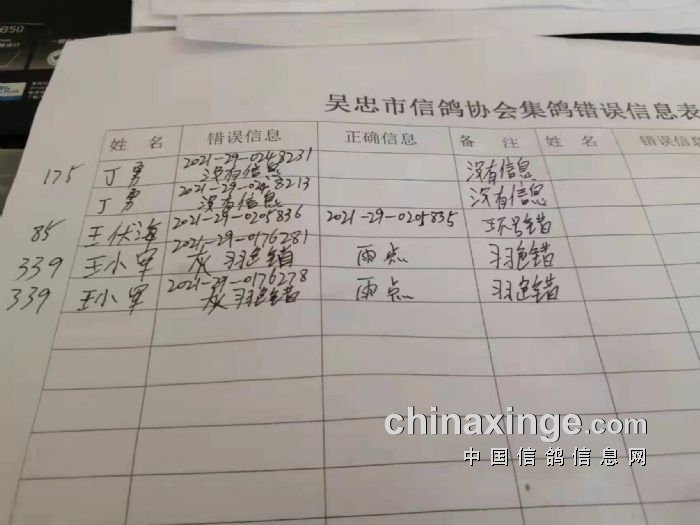 850
吴忠市信鸽协会集鸽错误信息表
姓 名 错误信息 正确信息 备 注 姓 名 错误信息
175 丁勇 2021-29-0248231 没有信息 没有信息
丁勇 2021-29-0248213 没有信息 没有信息
85 王伏海 2021-29-0205836 2021-29-0205835 环号错
339 王小军 2021-29-0176281 灰 羽色错 雨点 羽色错
339 王小军 2021-29-0176278 灰 羽色错 雨点 羽色错
chinaxinge.com
中国信鸽信息网